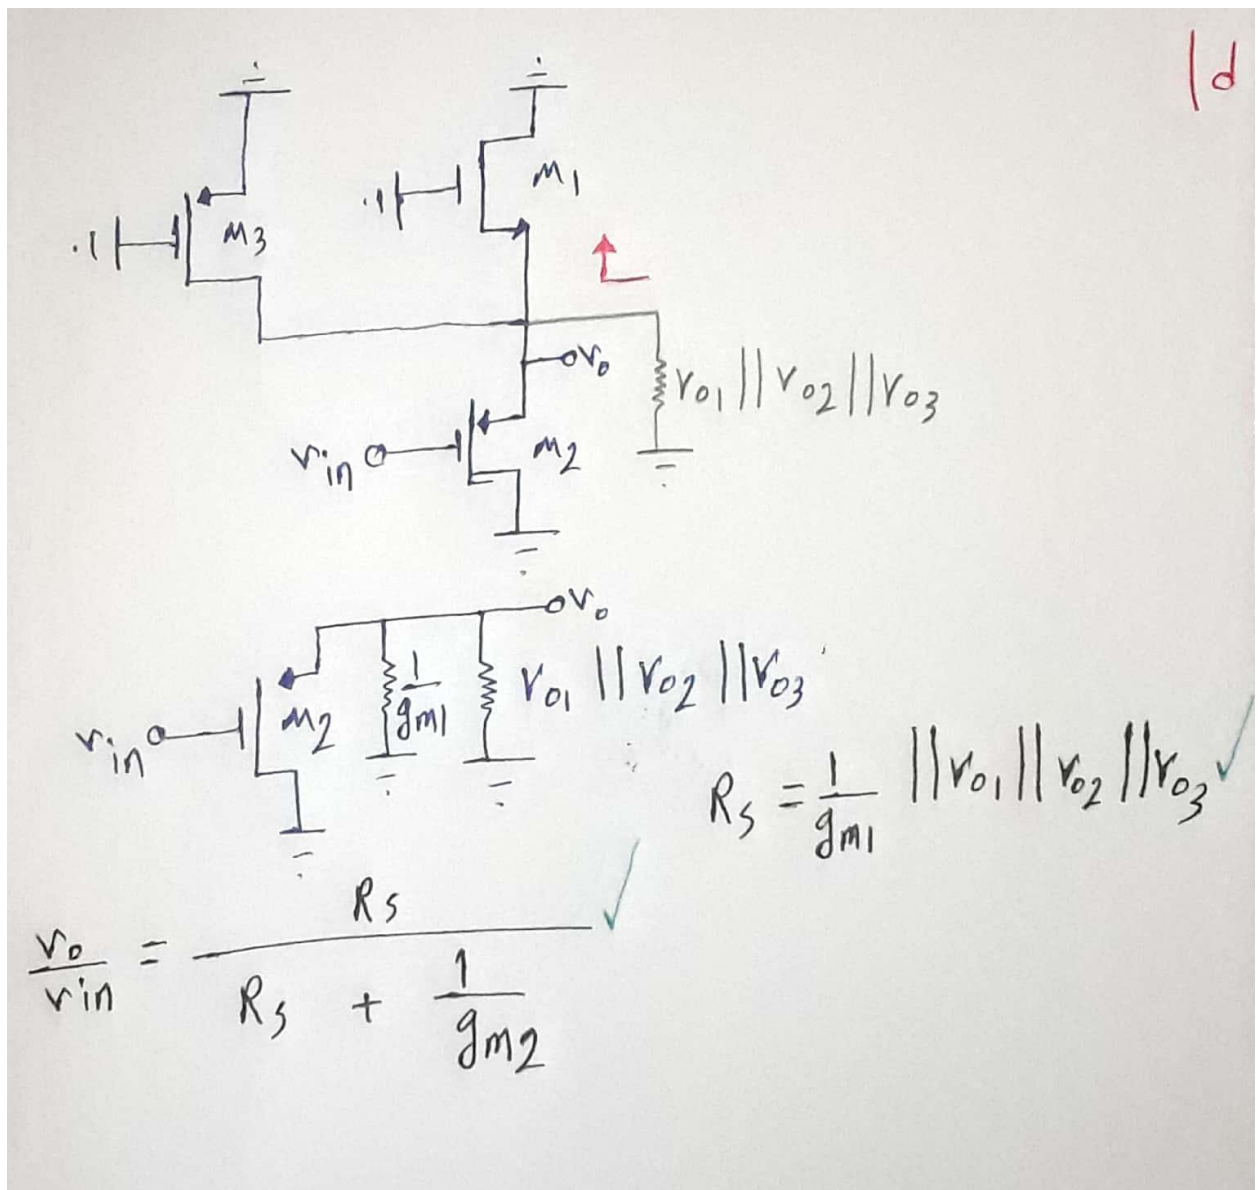 1d
M1
M3
vo
ro1 || ro2 || ro3
vin
M2
vo
1/gm1
ro1 || ro2 || ro3
vin
M2
Rs = 1/gm1 || ro1 || ro2 || ro3 ✓
vo/vin = Rs / (Rs + 1/gm2) ✓